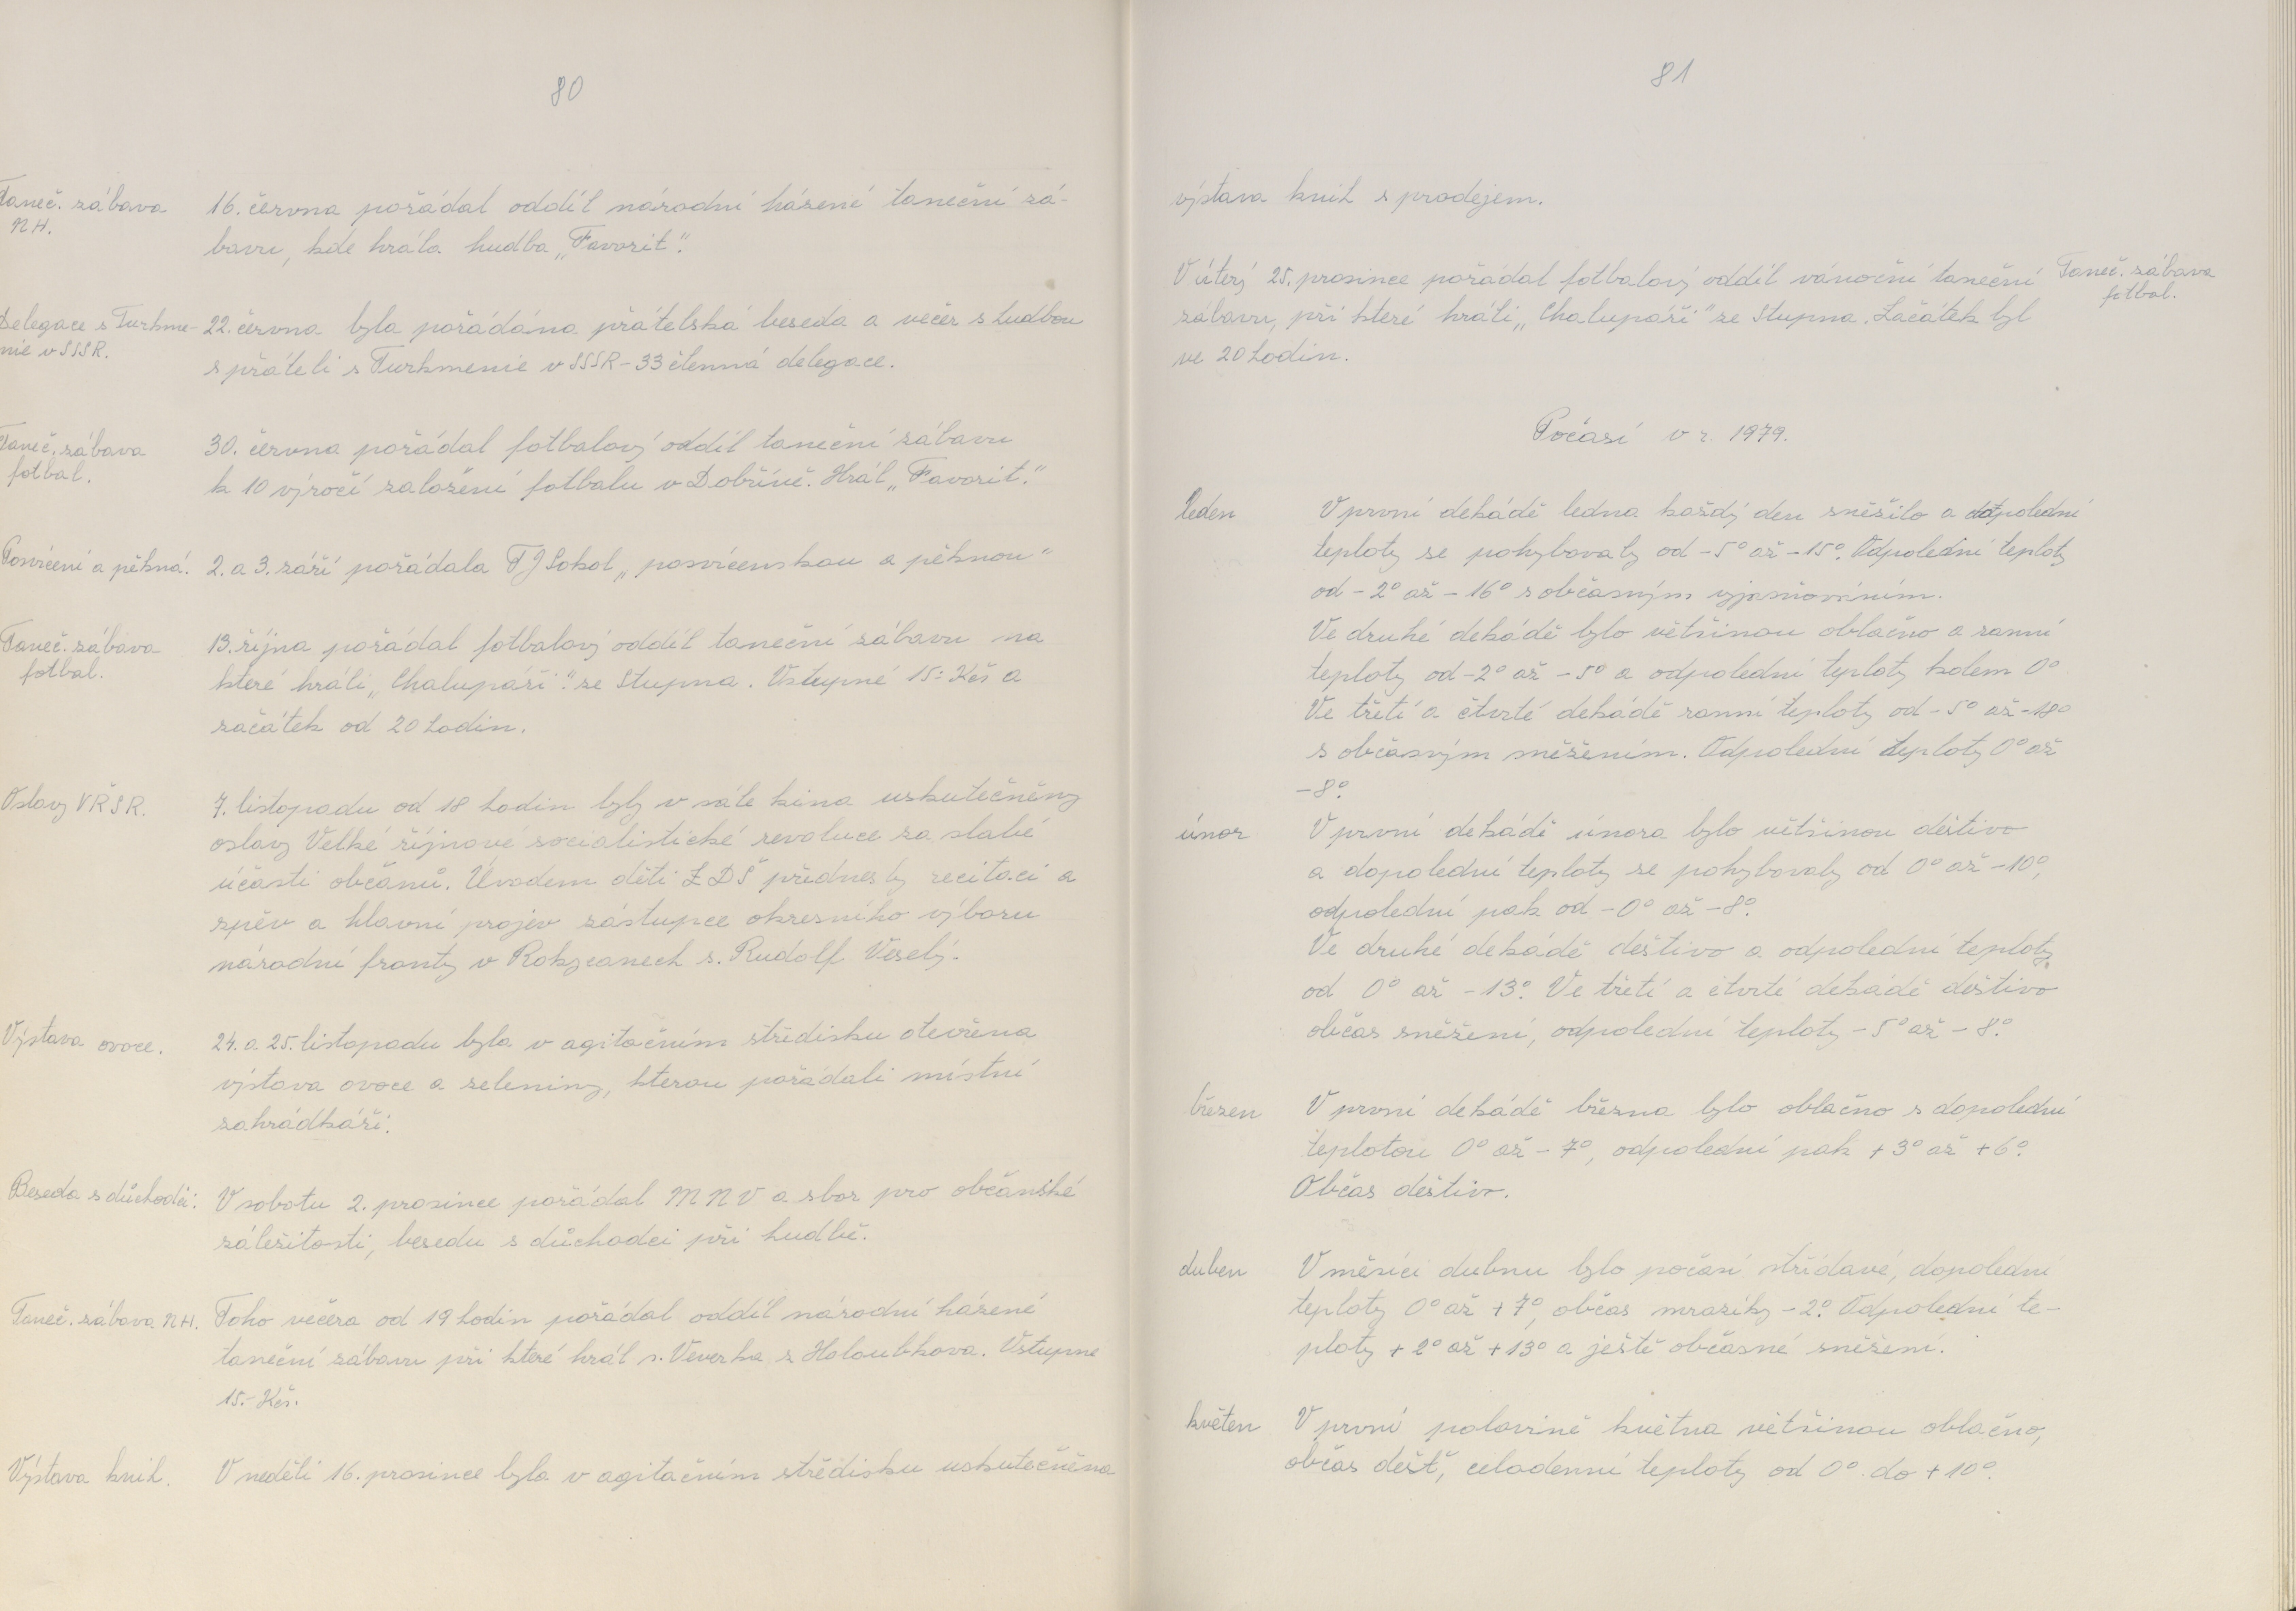 80
Taneč. zábava
N H.
16. června pořádal oddíl národní házené taneční zá-
bavu, kde hrála hudba „Favorit".
Delegace s Turkme-
nie v SSSR.
22. června byla pořádána přátelská beseda a večer s hudbou
s přáteli s Turkmenie v SSSR - 33 členná delegace.
Taneč. zábava
fotbal.
30. června pořádal fotbalový oddíl taneční zábavu
k 10 výročí založení fotbalu v Dobříně. Hrál „Favorit."
Posvícení a pěkná.
2. a 3. září pořádala TJ Sokol „posvícenskou a pěknou"
Taneč. zábava
fotbal.
13. října pořádal fotbalový oddíl taneční zábavu na
které hráli „Chalupáři". ze Stupna. Vstupné 15.- Kčs a
začátek od 20 hodin.
Oslavy VŘSR.
7. listopadu od 18 hodin byly v sále kina uskutečněny
oslavy Velké říjnové socialistické revoluce za slabé
účasti občanů. Úvodem děti ZDŠ přednesly recitaci a
zpěv a hlavní projev zástupce okresního výboru
národní fronty v Rokycanech s. Rudolf Veselý.
Výstava ovoce.
24. a 25. listopadu byla v agitačním středisku otevřena
výstava ovoce a zeleniny, kterou pořádali místní
zahrádkáři.
Beseda s důchodci:
V sobotu 2. prosince pořádal MNV a sbor pro občanské
záležitosti, besedu s důchodci při hudbě.
Taneč. zábava N H.
Toho večera od 19 hodin pořádal oddíl národní házené
taneční zábavu při které hrál s. Veverka z Holoubkova. Vstupné
15.- Kčs.
Výstava knih.
V neděli 16. prosince byla v agitačním středisku uskutečněna
81
výstava knih s prodejem.
V úterý 25. prosince pořádal fotbalový oddíl vánoční taneční
zábavu, při které hráli „Chalupáři" ze Stupna. Začátek byl
ve 20 hodin.
Taneč. zábava
fotbal.
Počasí v r. 1979.
leden
V první dekádě ledna každý den sněžilo a dopolední
teploty se pohybovaly od -5° až -15°. Odpolední teploty
od -2° až -16° s občasným vyjasňováním.
Ve druhé dekádě bylo většinou oblačno a ranní
teploty od -2° až -5° a odpolední teploty kolem 0°
Ve třetí a čtvrté dekádě ranní teploty od -5° až -18°
s občasným sněžením. Odpolední teploty 0° až
-8°.
únor
V první dekádě února bylo většinou deštivo
a dopolední teploty se pohybovaly od 0° až -10°,
odpolední pak od -0° až -8°.
Ve druhé dekádě deštivo a odpolední teploty
od 0° až -13°. Ve třetí a čtvrté dekádě deštivo
občas sněžení, odpolední teploty -5° až -8°.
březen
V první dekádě března bylo oblačno s dopolední
teplotou 0° až -7°, odpolední pak +3° až +6°.
Občas deštivo.
duben
V měsíci dubnu bylo počasí střídavé, dopolední
teploty 0° až +7°, občas mrazíky -2°. Odpolední te-
ploty +2° až +13° a ještě občasné sněžení.
květen
V první polovině května většinou oblačno,
občas déšť, celodenní teploty od 0° do +10°.